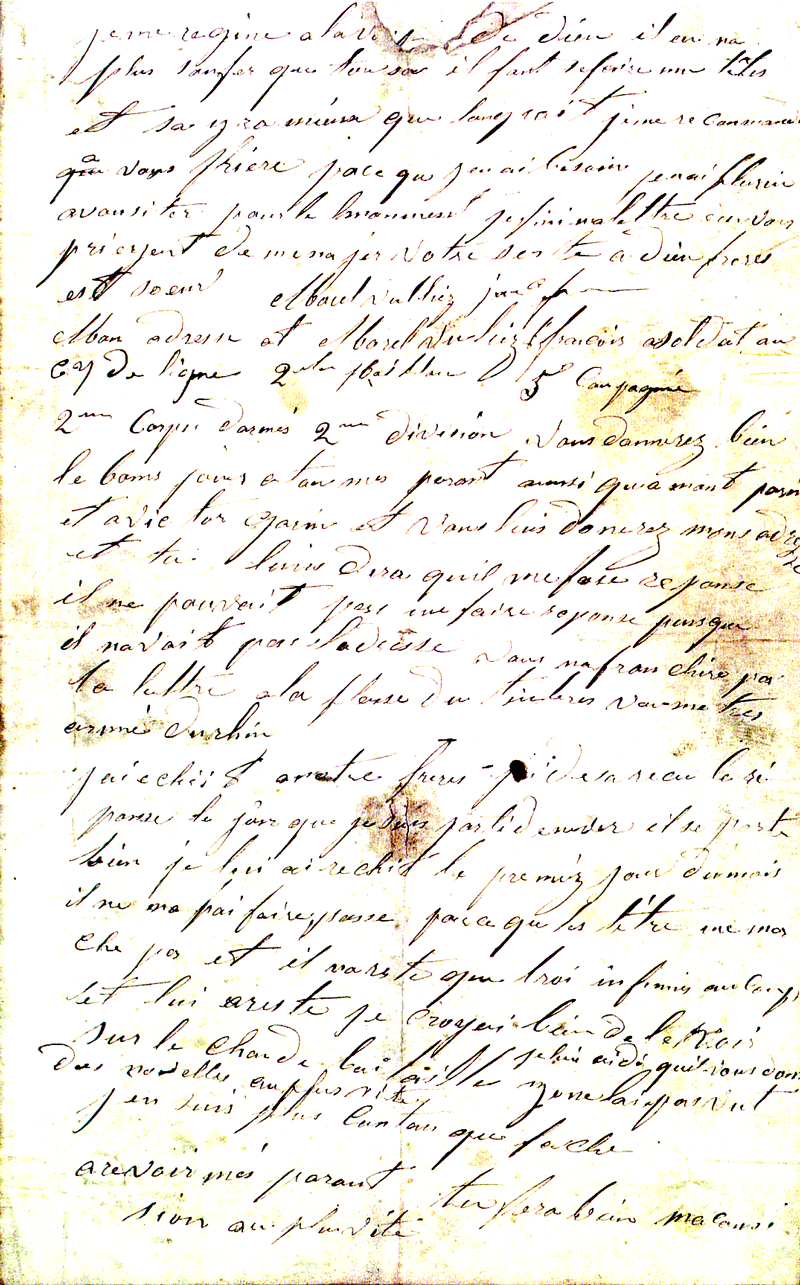 je me regine a la vois de dieu il en na
plus soufer que tou sa il faut se faire une têtes
et sa yra mieux que lon croit je me recommande
a vous prière pace que jen ai besoin je nai plus rien
avousiter pour le moument je fini ma lettre en vous
prierjent de menajer votre sente a dieu freres
est soeur Morel Vulliez
Mon adresse at Morel Vulliez françois soldat au
de ligne 2 me Batillon 5e Conpagnie
2me Corps darmés 2me division Vous donnerez bien
le bons jours a tou mes parant aunsi qua mont
et a victor et vous luis donerez mons adresse
et tu luis dira quil me fase reponse
il ne pouvait pas me faire reponse puisque
il navait pas ladresse vous nafranchire pas
la lettre a la plasse du timbres vou metres
armé du rhin
jai echrit a notre freres jai resu la ré
ponse le jour que je suis parti il se porte
bien je lui ai rechrit le premiez jour du mois
il ne ma pas faire passe parce que les létre ne mar
che pas et il nareste que troi infirmis au camp
et lui areste je croyai bien de le voir
sur le chan de bataille je ne lai pas vut
je lui ai dis quil vous don
des novelles au plus vite
jen suis plus contan que faché
arevoir més parant
tu fera bien ma comi
sion au plu vite